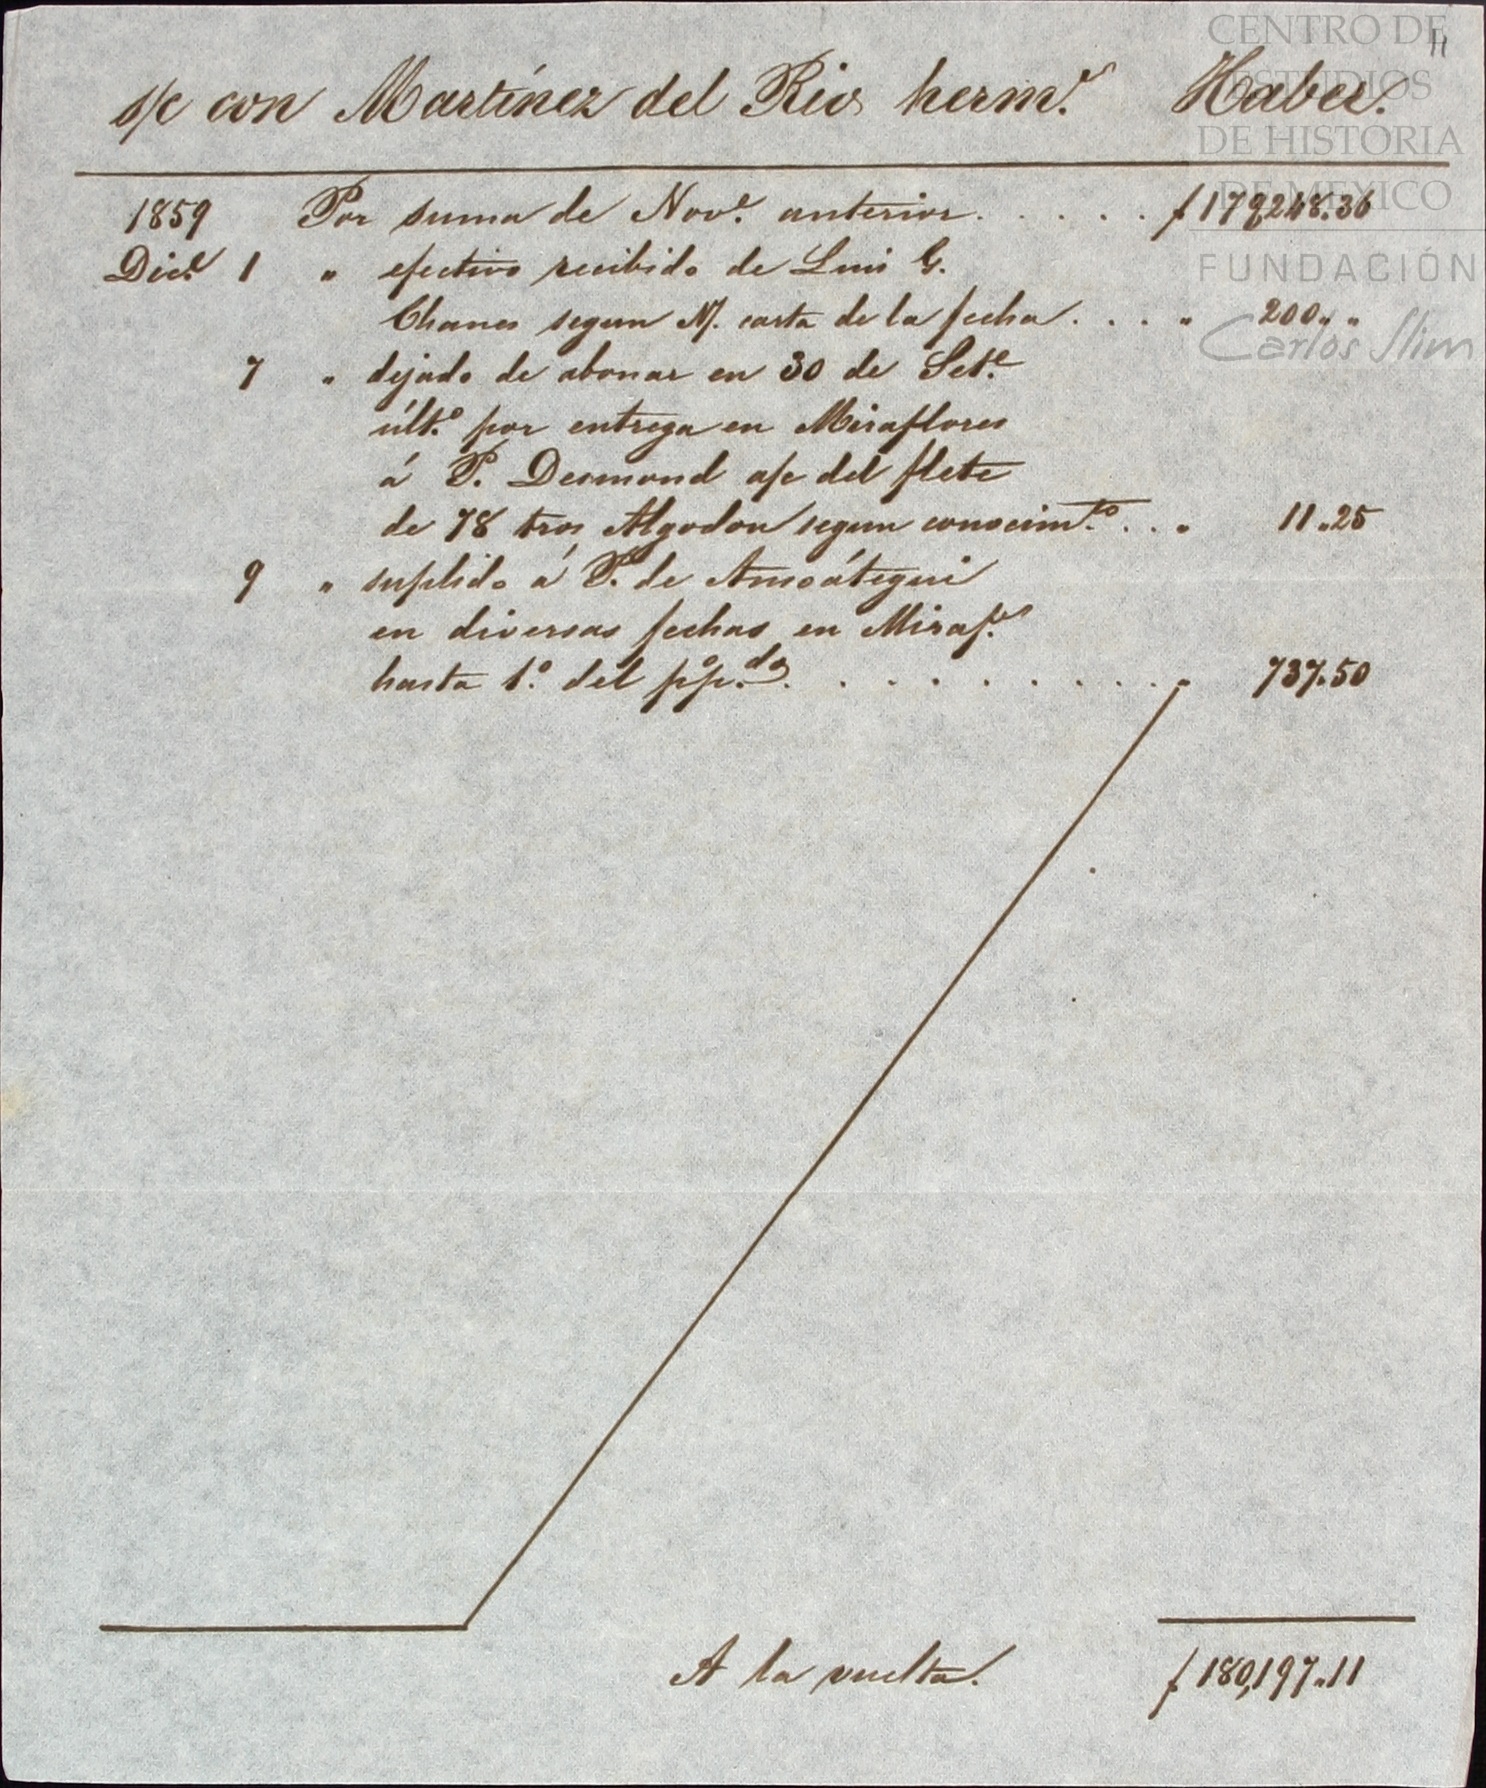 11
s/c con Martínez del Rio hermˢ. Haber.
1859 Por suma de Novᵉ. anterior. . . . . . $ 179,248.36
Dicᵉ. 1 " efectivo recibido de Luis G.
Chanes segun N/. carta de la fecha. . . . " 200 " "
7 " dejado de abonar en 30 de Setᵉ.
últº. por entrega en Miraflores
á P. Desmond a/c del flete
de 78 tros Algodon segun conocimᵗº. . . " 11.25
9 " suplido á P. de Amoátegui
en diversas fechas en Mirafˢ.
hasta 1º. del pº.pᵈº. . . . . . . . . . . " 737.50
A la vuelta. $ 180,197.11
CENTRO DE
ESTUDIOS
DE HISTORIA
DE MEXICO
FUNDACIÓN
Carlos Slim